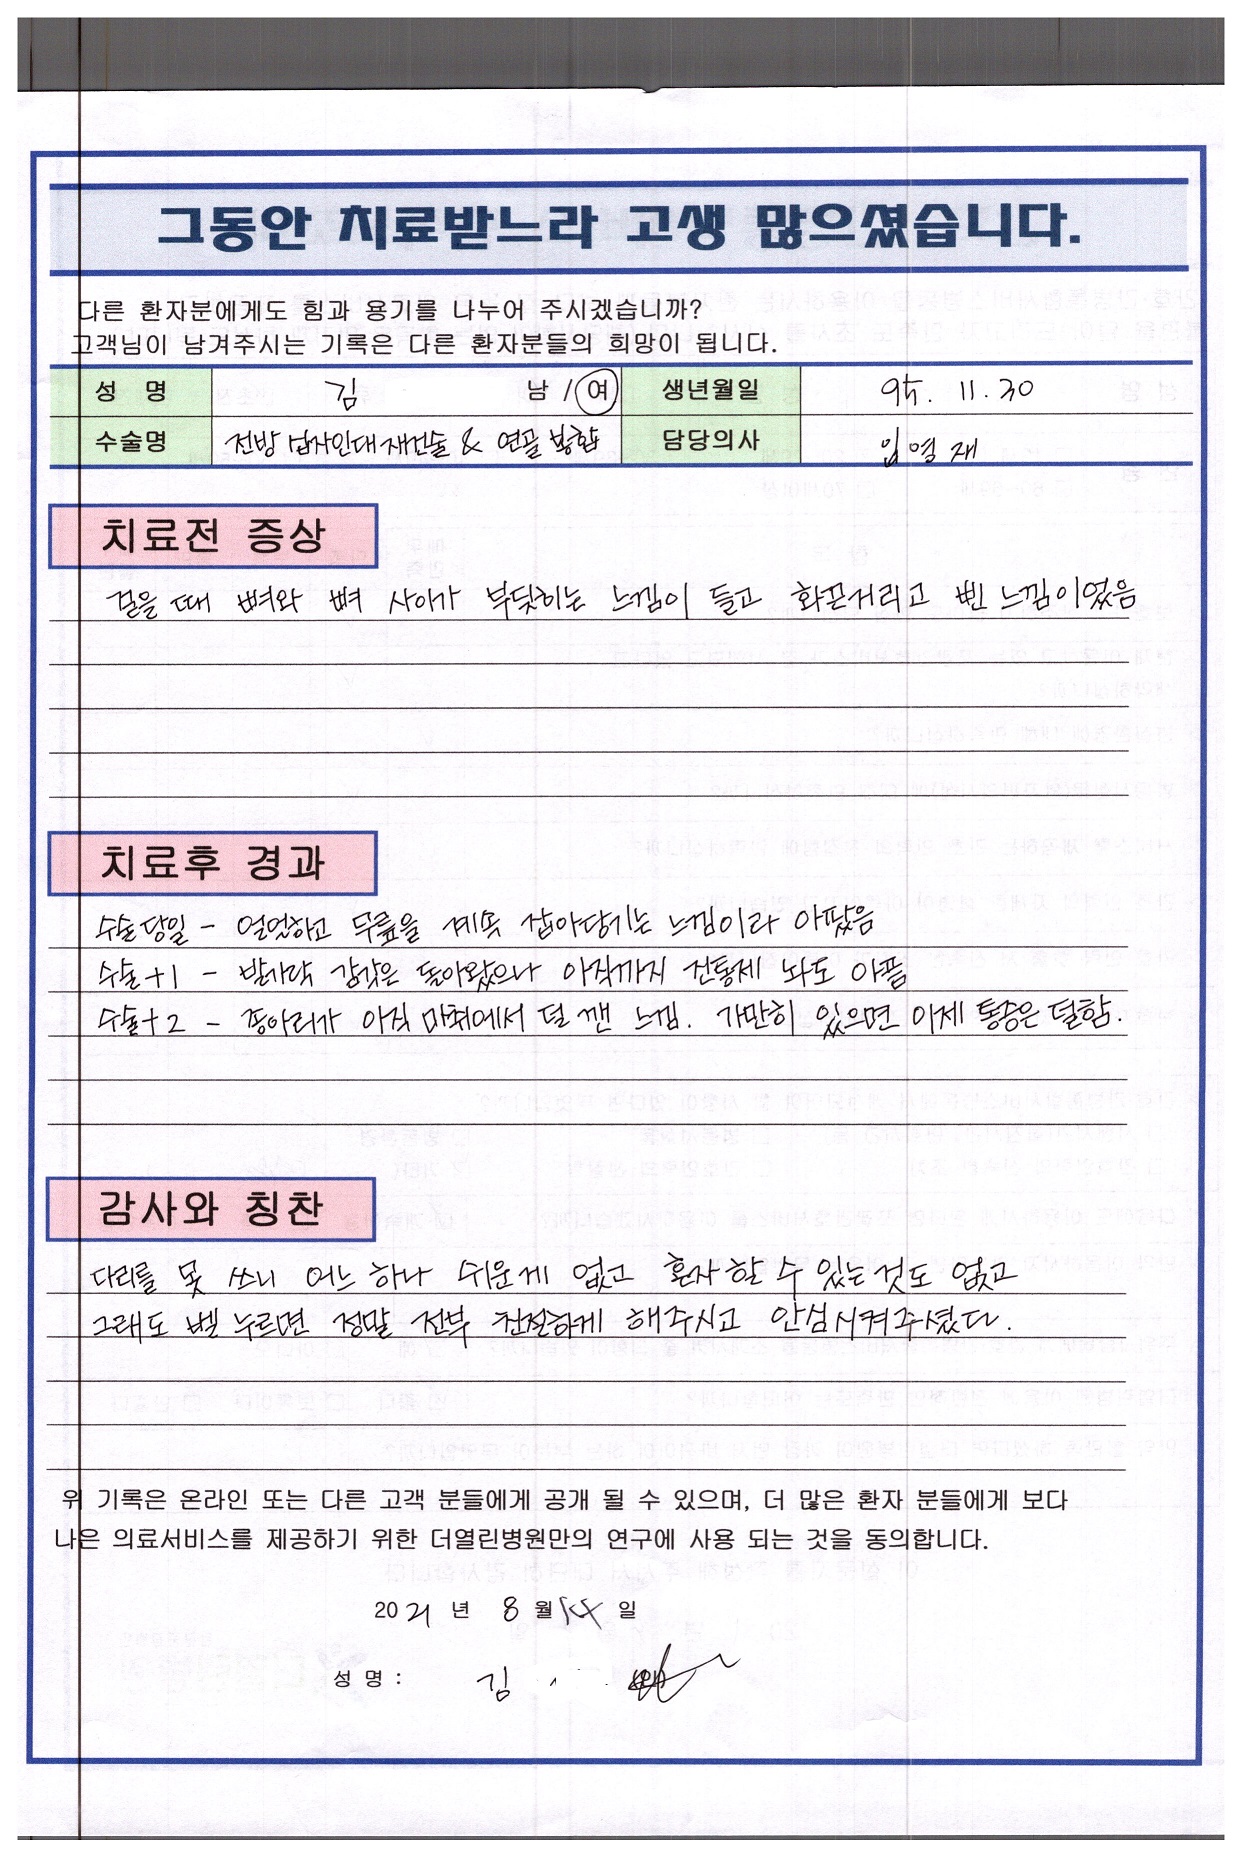 그동안 치료받느라 고생 많으셨습니다.
다른 환자분에게도 힘과 용기를 나누어 주시겠습니까?
고객님이 남겨주시는 기록은 다른 환자분들의 희망이 됩니다.
성 명 김 남 / 여 생년월일 95. 11. 30
수술명 전방 십자인대 재건술 & 연골 봉합 담당의사 임형재
치료전 증상
걸을 때 뼈와 뼈 사이가 부딪히는 느낌이 들고 화끈거리고 삔 느낌이었음
치료후 경과
수술당일 - 얼얼하고 무릎을 계속 잡아당기는 느낌이라 아팠음
수술+1 - 발가락 감각은 돌아왔으나 아직까지 진통제 놔도 아픔
수술+2 - 종아리가 아직 마취에서 덜 깬 느낌. 가만히 있으면 이제 통증은 덜함.
감사와 칭찬
다리를 못 쓰니 어느 하나 쉬운게 없고 혼자 할 수 있는것도 없고
그래도 벨 누르면 정말 전부 친절하게 해주시고 안심시켜주셨다.
위 기록은 온라인 또는 다른 고객 분들에게 공개 될 수 있으며, 더 많은 환자 분들에게 보다
나은 의료서비스를 제공하기 위한 더열린병원만의 연구에 사용 되는 것을 동의합니다.
2021 년 8 월 일
성 명 : 김